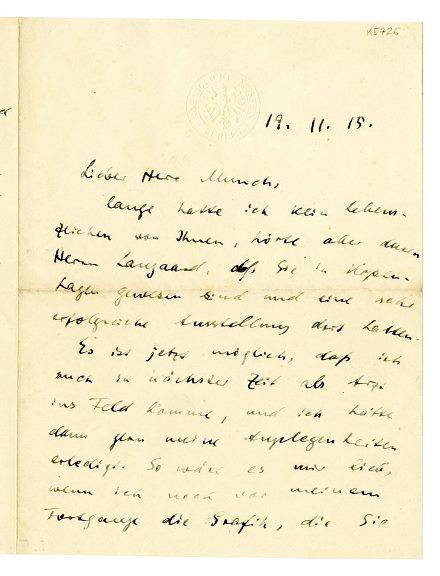 K5726
19. 11. 15.
Lieber Herr Munch,
lange hatte ich kein Lebens-
zeichen von Ihnen, hörte aber durch
Herrn Langaard, daß Sie in Kopen-
hagen gewesen sind und eine sehr
erfolgreiche Ausstellung dort hatten.
Es ist jetzt möglich, daß ich
auch in nächster Zeit als Arzt
ins Feld komme, und ich hätte
dann gern meine Angelegenheiten
erledigt. So wäre es mir lieb,
wenn ich noch vor meinem
Fortgange die Grafik, die Sie